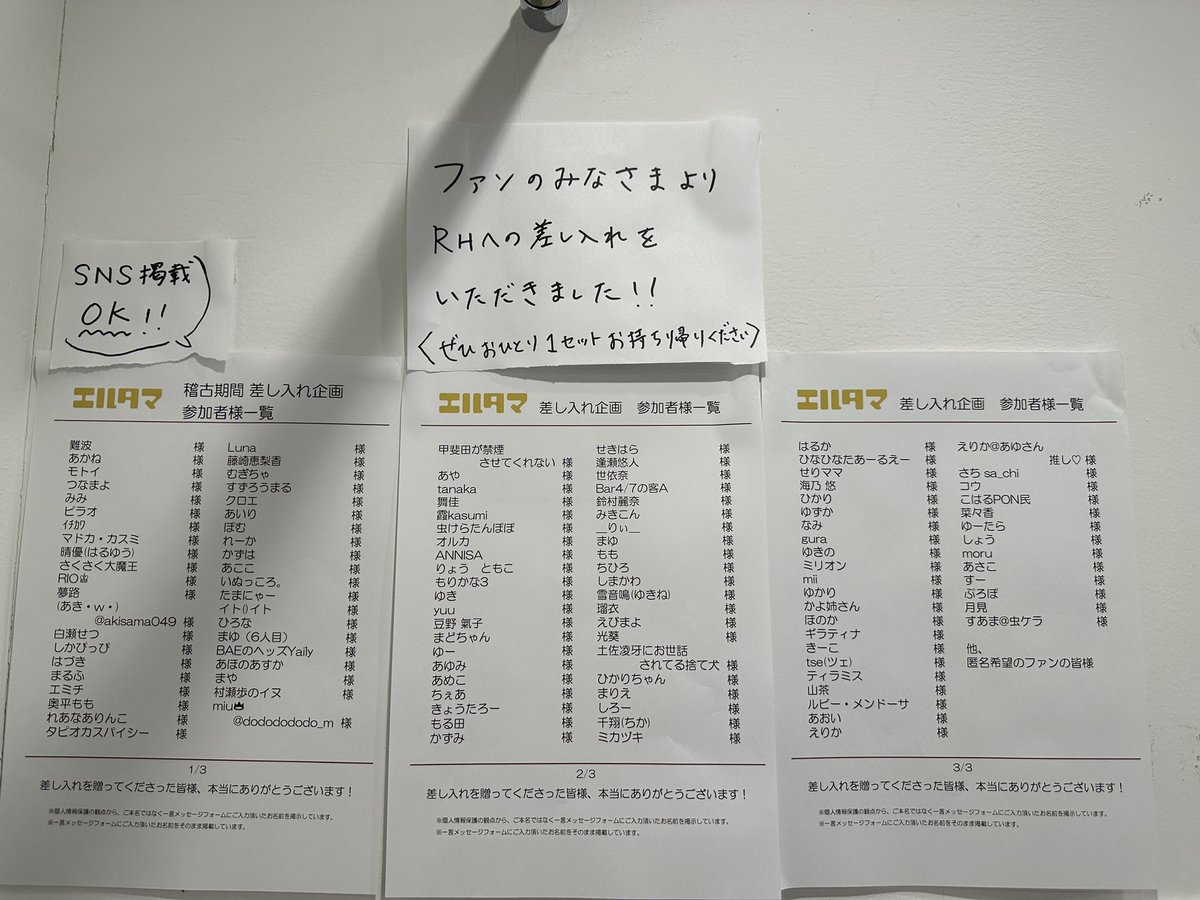 ファンのみなさまより
RHへの差し入れを
いただきました!!
〈ぜひおひとり1セットお持ち帰りください〉
SNS掲載
OK!!
エルタマ 稽古期間 差し入れ企画
参加者様一覧
難波 様
あかね 様
モトイ 様
つなまよ 様
みみ 様
ピラオ 様
イチカワ 様
マドカ・カスミ 様
晴優(はるゆう) 様
さくさく大魔王 様
RIO♔ 様
夢路 様
(あき・w・)
@akisama049 様
白瀬せつ 様
しかぴっぴ 様
はづき 様
まるふ 様
エミチ 様
奥平もも 様
れあなありんこ 様
タピオカスパイシー 様
Luna 様
藤崎恵梨香 様
むぎちゃ 様
すずろうまる 様
クロエ 様
あいり 様
ぽむ 様
れーか 様
かずは 様
あここ 様
いぬっころ。 様
たまにゃー 様
イト()イト 様
ひろな 様
まゆ(6人目) 様
BAEのヘッズYaily 様
あほのあすか 様
まや 様
村瀬歩のイヌ 様
miu♚
@dodododododo_m 様
1/3
差し入れを贈ってくださった皆様、本当にありがとうございます!
※個人情報保護の観点から、ご本名ではなく一言メッセージフォームにご入力頂いたお名前を掲示しています。
※一言メッセージフォームにご入力頂いたお名前をそのまま掲載しています。
エルタマ 差し入れ企画 参加者様一覧
甲斐田が禁煙
させてくれない 様
あや 様
tanaka 様
舞佳 様
霞kasumi 様
虫けらたんぽぽ 様
オルカ 様
ANNISA 様
りょう ともこ 様
もりかな3 様
ゆき 様
yuu 様
豆野 氣子 様
まどちゃん 様
ゆー 様
あゆみ 様
あめこ 様
ちぇあ 様
きょうたろー 様
もる田 様
かずみ 様
せきはら 様
逢瀬悠人 様
世依奈 様
Bar4/7の客A 様
鈴村麗奈 様
みきこん 様
__りぃ__ 様
まゆ 様
もも 様
ちひろ 様
しまかわ 様
雪音鳴(ゆきね) 様
瑠衣 様
えびまよ 様
光葵 様
土佐凌牙にお世話
されてる捨て犬 様
ひかりちゃん 様
まりえ 様
しろー 様
千翔(ちか) 様
ミカヅキ 様
2/3
差し入れを贈ってくださった皆様、本当にありがとうございます!
※個人情報保護の観点から、ご本名ではなく一言メッセージフォームにご入力頂いたお名前を掲示しています。
※一言メッセージフォームにご入力頂いたお名前をそのまま掲載しています。
エルタマ 差し入れ企画 参加者様一覧
はるか 様
ひなひなたあーるえー 様
せりママ 様
海乃 悠 様
ひかり 様
ゆずか 様
なみ 様
gura 様
ゆきの 様
ミリオン 様
mii 様
ゆかり 様
かよ姉さん 様
ほのか 様
ギラティナ 様
きーこ 様
tse(ツェ) 様
ティラミス 様
山茶 様
ルビー・メンドーサ 様
あおい 様
えりか 様
えりか@あゆさん
推し♡ 様
さち sa_chi 様
コウ 様
こはるPON民 様
菜々香 様
ゆーたら 様
しょう 様
moru 様
あさこ 様
すー 様
ぷろぽ 様
月見 様
すあま@虫ケラ 様
他、
匿名希望のファンの皆様
3/3
差し入れを贈ってくださった皆様、本当にありがとうございます!
※個人情報保護の観点から、ご本名ではなく一言メッセージフォームにご入力頂いたお名前を掲示しています。
※一言メッセージフォームにご入力頂いたお名前をそのまま掲載しています。